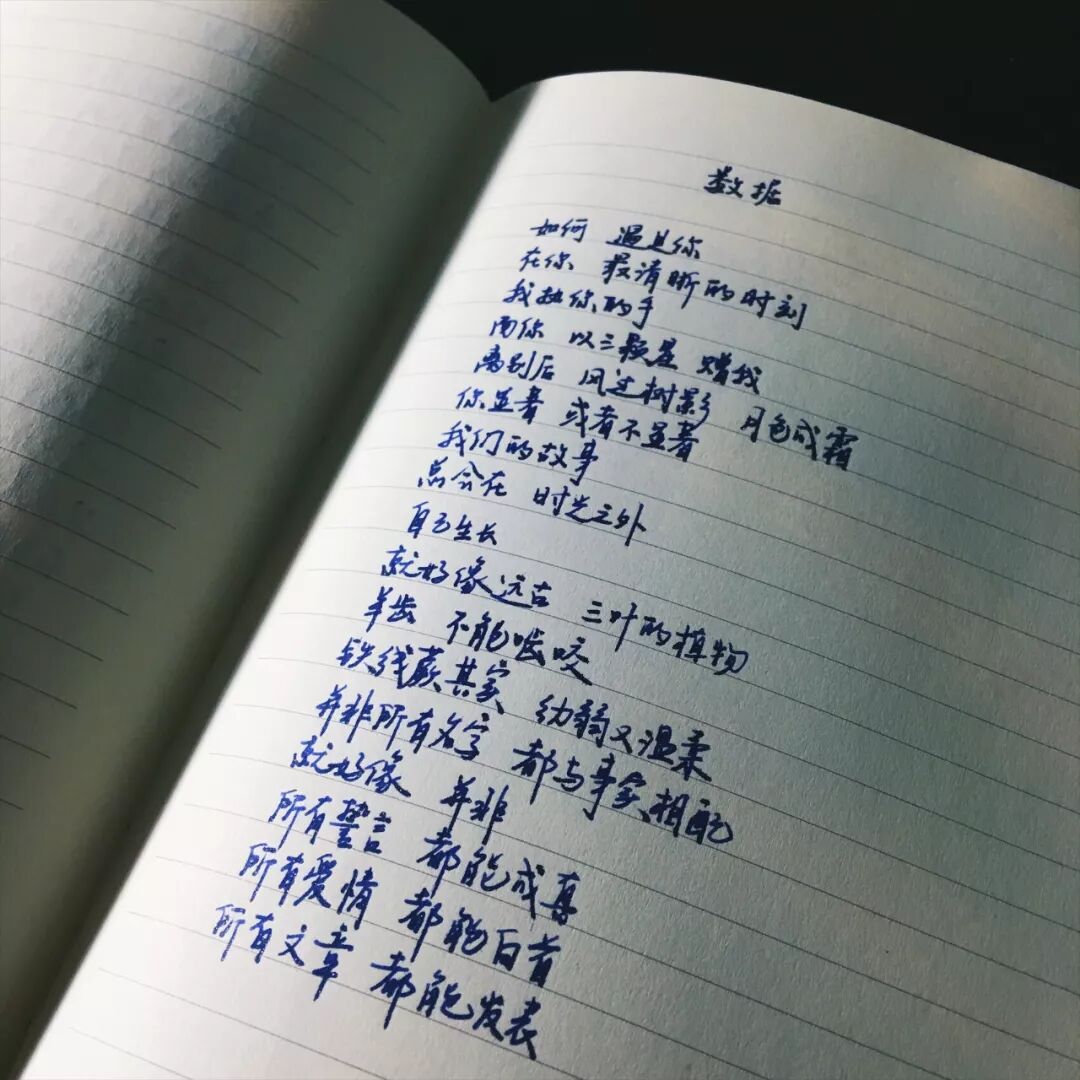 数据
如何 遇见你
在你 最清晰的时刻
我执你的手
而你 以三颗星 赠我
离别后 风过树影 月色成霜
你显著 或者不显著
我们的故事
总会在 时光之外
自己生长
就好像远古 三叶的植物
羊齿 不能啮咬
铁线蕨其实 幼弱又温柔
并非所有名字 都与事实相配
就好像 并非
所有誓言 都能成真
所有爱情 都能白首
所有文章 都能发表